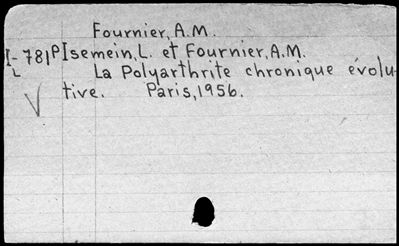 Fournier, A.M.
I- 781P Isemein, L. et Fournier, A.M.
L La Polyarthrite chronique évolu-
tive. Paris, 1956.